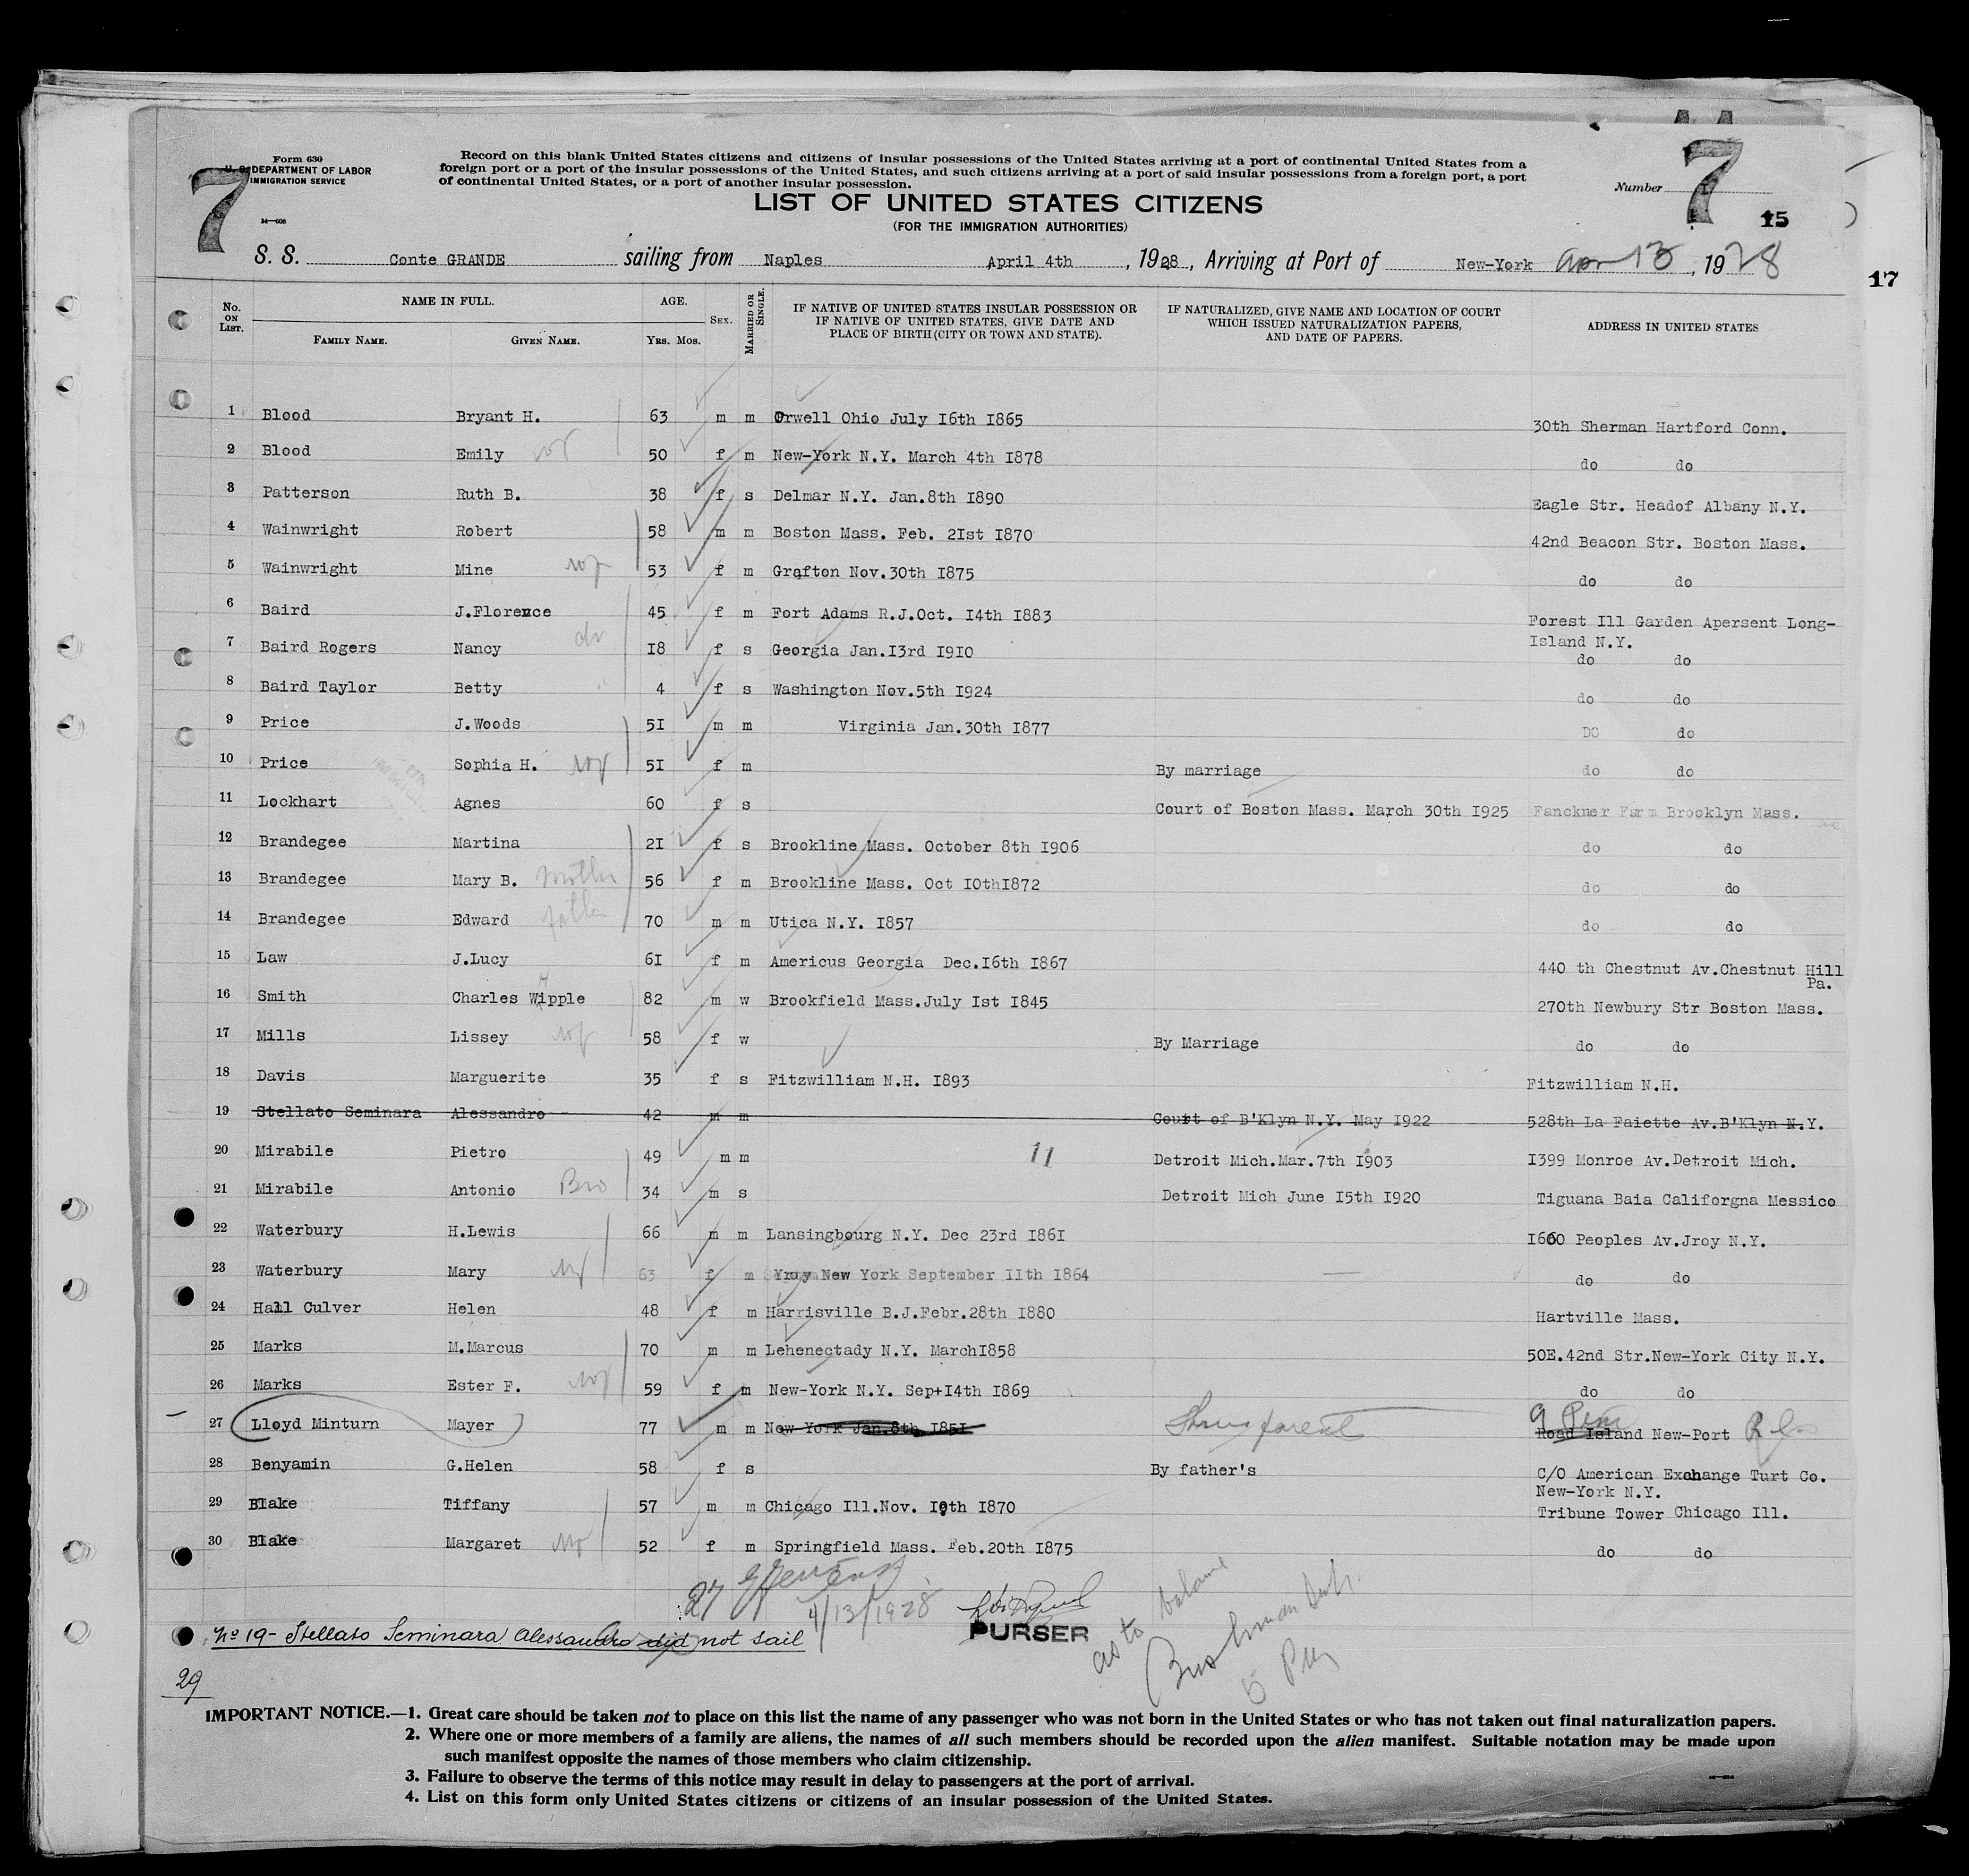 Form 630
U. S. DEPARTMENT OF LABOR
IMMIGRATION SERVICE
14—608
7
Record on this blank United States citizens and citizens of insular possessions of the United States arriving at a port of continental United States from a
foreign port or a port of the insular possessions of the United States, and such citizens arriving at a port of said insular possessions from a foreign port, a port
of continental United States, or a port of another insular possession.
Number 7
15
17
LIST OF UNITED STATES CITIZENS
(FOR THE IMMIGRATION AUTHORITIES)
S. S. Conte GRANDE sailing from Naples April 4th, 1928, Arriving at Port of New-York Apr 13, 1928
No. ON LIST. NAME IN FULL. FAMILY NAME. GIVEN NAME. AGE. YRS. MOS. SEX. MARRIED OR SINGLE. IF NATIVE OF UNITED STATES INSULAR POSSESSION OR IF NATIVE OF UNITED STATES, GIVE DATE AND PLACE OF BIRTH (CITY OR TOWN AND STATE). IF NATURALIZED, GIVE NAME AND LOCATION OF COURT WHICH ISSUED NATURALIZATION PAPERS, AND DATE OF PAPERS. ADDRESS IN UNITED STATES
1 Blood Bryant H. 63 m m Orwell Ohio July I6th I865 30th Sherman Hartford Conn.
2 Blood Emily wf 50 f m New-York N.Y. March 4th I878 do do
3 Patterson Ruth B. 38 f s Delmar N.Y. Jan.8th I890 Eagle Str. Headof Albany N.Y.
4 Wainwright Robert 58 m m Boston Mass. Feb. 2Ist I870 42nd Beacon Str. Boston Mass.
5 Wainwright Mine wf 53 f m Grafton Nov.30th I875 do do
6 Baird J.Florence 45 f m Fort Adams R.J.Oct. I4th I883 Forest Ill Garden Apersent Long-
Island N.Y.
7 Baird Rogers Nancy I8 f s Georgia Jan.I3rd I9I0 do do
8 Baird Taylor Betty 4 f s Washington Nov.5th I924 do do
9 Price J.Woods 5I m m Virginia Jan.30th I877 DO do
10 Price Sophia H. wf 5I f m By marriage do do
11 Lockhart Agnes 60 f s Court of Boston Mass. March 30th I925 Fanckner Farm Brooklyn Mass.
12 Brandegee Martina 2I f s Brookline Mass. October 8th I906 do do
13 Brandegee Mary B. Mother 56 f m Brookline Mass. Oct I0thI872 do do
14 Brandegee Edward father 70 m m Utica N.Y. I857 do do
15 Law J.Lucy 6I f m Americus Georgia Dec.I6th I867 440 th Chestnut Av.Chestnut Hill
Pa.
16 Smith Charles WHipple 82 m w Brookfield Mass.July Ist I845 270th Newbury Str Boston Mass.
17 Mills Lissey 58 f w By Marriage do do
18 Davis Marguerite 35 f s Fitzwilliam N.H. I893 Fitzwilliam N.H.
19 Stellato Seminara Alessandro 42 m m Court of B'Klyn N.Y. May I922 528th La Faiette Av.B'Klyn N.Y.
20 Mirabile Pietro 49 m m 11 Detroit Mich.Mar.7th I903 I399 Monroe Av.Detroit Mich.
21 Mirabile Antonio Bro 34 m s Detroit Mich June I5th I920 Tiguana Baia Califorgna Messico
22 Waterbury H.Lewis 66 m m Lansingbourg N.Y. Dec 23rd I86I I660 Peoples Av.Jroy N.Y.
23 Waterbury Mary wf 63 f m New York September IIth I864 do do
24 Hall Culver Helen 48 f m Harrisville B.J.Febr.28th I880 Hartville Mass.
25 Marks M.Marcus 70 m m Lehenectady N.Y. MarchI858 50E.42nd Str.New-York City N.Y.
26 Marks Ester F. wf 59 f m New-York N.Y. Sep+I4th I869 do do
27 Lloyd Minturn Mayer 77 m m New York Jan.8th I85I Road Island New-Port
28 Benyamin G.Helen 58 f s By father's C/O American Exchange Turt Co.
New-York N.Y.
29 Blake Tiffany 57 m m Chicago Ill.Nov. I9th I870 Tribune Tower Chicago Ill.
30 Blake Margaret 52 f m Springfield Mass. Feb.20th I875 do do
27
4/13/1928
PURSER
as to balance
5 PM
No 19- Stellato Seminara Alessandro did not sail
29
IMPORTANT NOTICE.—1. Great care should be taken not to place on this list the name of any passenger who was not born in the United States or who has not taken out final naturalization papers.
2. Where one or more members of a family are aliens, the names of all such members should be recorded upon the alien manifest. Suitable notation may be made upon
such manifest opposite the names of those members who claim citizenship.
3. Failure to observe the terms of this notice may result in delay to passengers at the port of arrival.
4. List on this form only United States citizens or citizens of an insular possession of the United States.